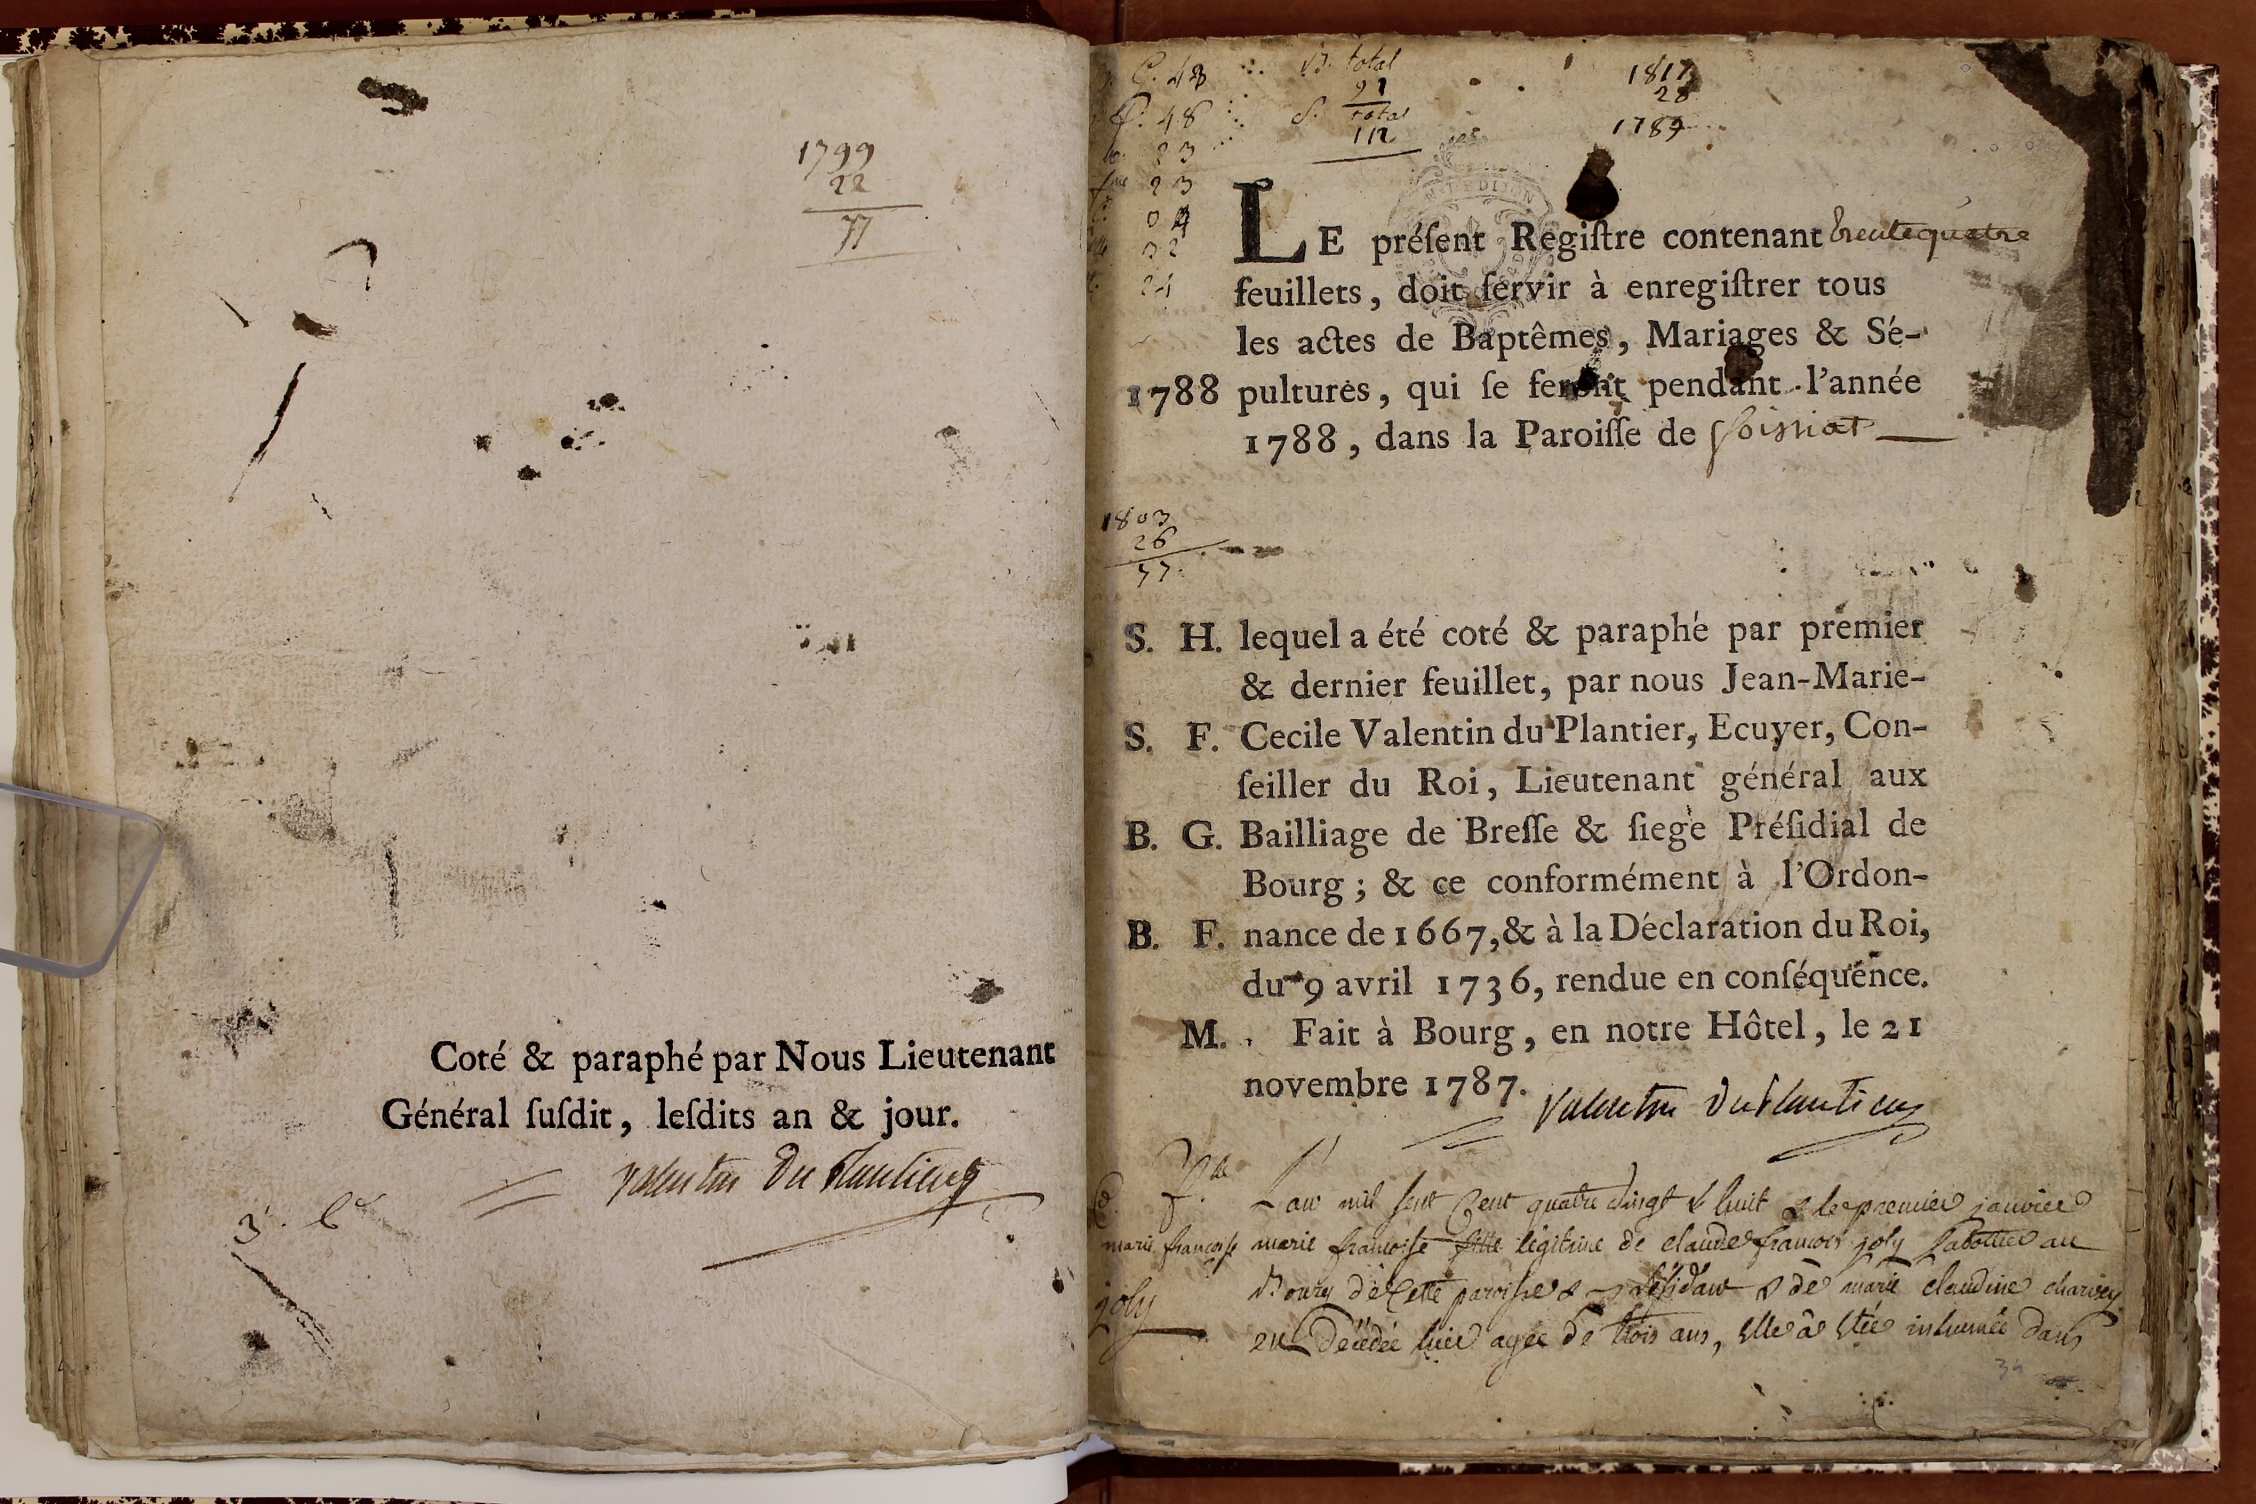 1799
22
77
Coté & paraphé par Nous Lieutenant
Général ſuſdit, leſdits an & jour.
Valentin Du Plantier
C. 48
48
23
23
04
32
24
B. total
91
S. total
112
1817
28
1789
LE préſent Regiſtre contenant trente quatre
feuillets, doit ſervir à enregiſtrer tous
les actes de Baptêmes, Mariages & Sé-
1788 pultures, qui ſe feront pendant l'année
1788, dans la Paroiſſe de foissiat
1803
26
77
S. H. lequel a été coté & paraphé par premier
& dernier feuillet, par nous Jean-Marie-
S. F. Cecile Valentin du Plantier, Ecuyer, Con-
ſeiller du Roi, Lieutenant général aux
B. G. Bailliage de Breſſe & ſiege Préſidial de
Bourg; & ce conformément à l'Ordon-
B. F. nance de 1667, & à la Déclaration du Roi,
du 9 avril 1736, rendue en conſéquence.
M. Fait à Bourg, en notre Hôtel, le 21
novembre 1787.
Valentin Du Plantier
L'an mil sept Cent quatre vingt & huit & le premier janvier
marie françoise
marie françoise fille légitime de claude françois joly Sabottier au
joly
Bourg de Cette paroisse & résidant & de marie claudine charvey
décédée hier agée de trois ans, elle a étée inhumée dans